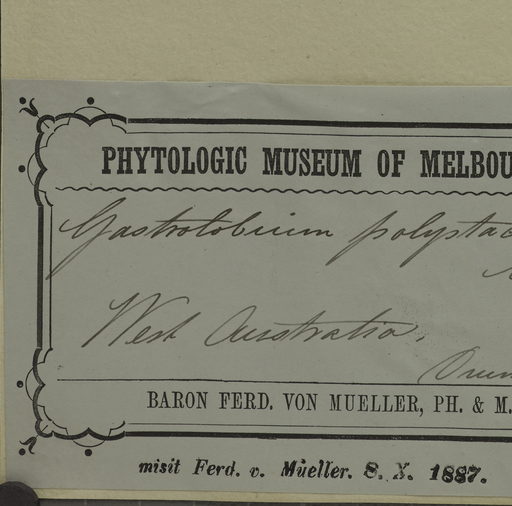 PHYTOLOGIC MUSEUM OF MELBOU
Gastrolobium polystac
West Australia.
BARON FERD. VON MUELLER, PH. & M.
misit Ferd. v. Müeller. 8. X. 1887.